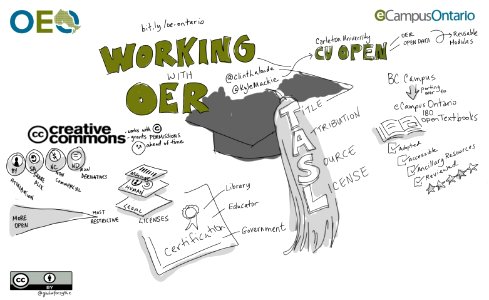 OEO
bit.ly/oe-ontario
eCampusOntario
WORKING
WITH
OER
@clintlalonde
@KyleMackie
Carleton University
CU OPEN
OER
OPEN DATA
Reusable
Modules
BC Campus
porting
over to
eCampus Ontario
180
Open Textbooks
Adopted
Accessible
Ancillary Resources
Reviewed
TITLE
ATTRIBUTION
SOURCE
LICENSE
cc creative
commons
- works with ©
- grants PERMISSIONS
ahead of time
BY
SA
NC
ND
ATTRIBUTION
SHARE
ALIKE
NON
COMMERCIAL
NON
DERIVATIVES
MORE
OPEN
MOST
RESTRICTIVE
MACHINE
HUMAN
LEGAL
LICENSES
Certification
Library
Educator
Government
cc
BY
@giuliaforsythe